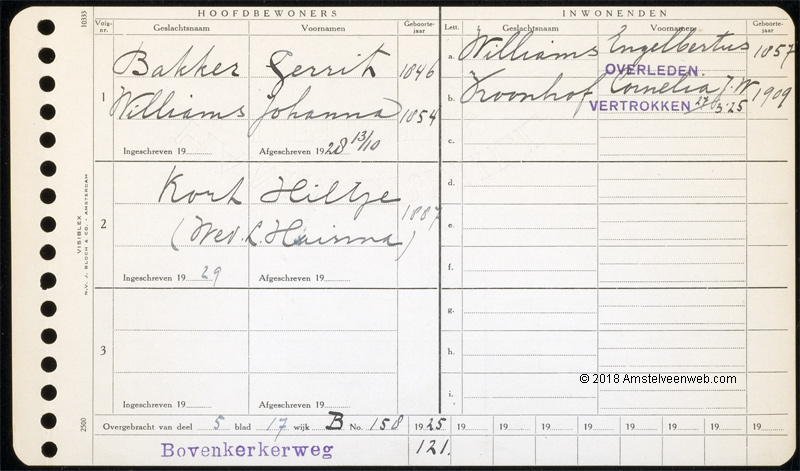 HOOFDBEWONERS
INWONENDEN
10333
Volg-nr. Geslachtsnaam Voornamen Geboorte-jaar
Lett. Geslachtsnaam Voornamen Geboorte-jaar
1
Bakker Gerrit 1846
Williams Johanna 1854
Ingeschreven 19 Afgeschreven 1928 13/10
a. Williams Engelbertus 1857
OVERLEDEN.
b. Kroonhof Cornelia J.W 1909
VERTROKKEN 27/3'25
c.
2
Kort Hiltje 1887
(Wed. L. Huisma)
Ingeschreven 1929 Afgeschreven 19
d.
e.
f.
3
Ingeschreven 19 Afgeschreven 19
g.
h.
i.
© 2018 Amstelveenweb.com
VISIBLEX
N.V. J. BLOCH & CO. - AMSTERDAM
2500
Overgebracht van deel 5 blad 17 wijk B No. 158 1925 19 19 19 19 19 19 19 19
Bovenkerkerweg 121.